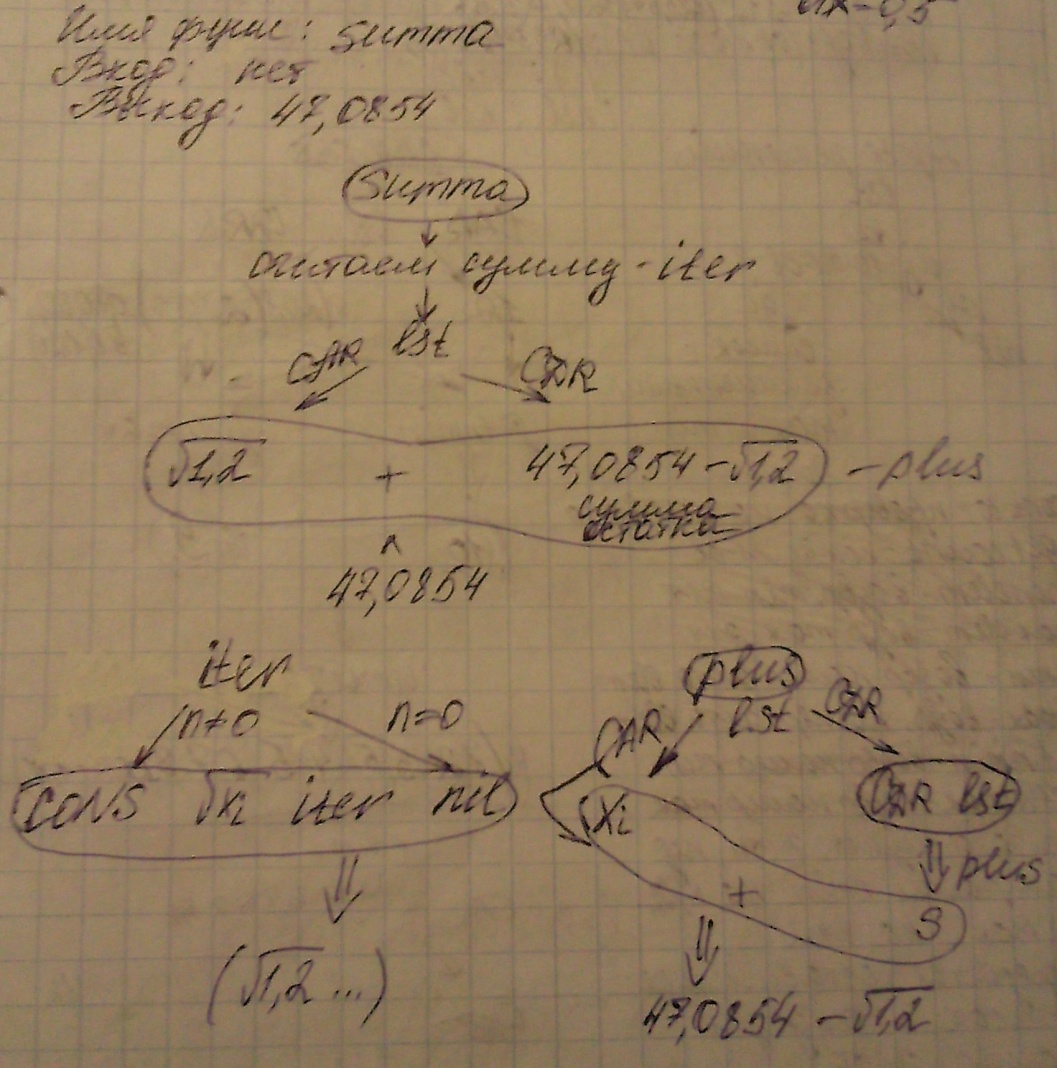 dx=0,5
Имя функ: summa
Вход: нет
Выход: 47,0854
Summa
считаем сумму - iter
lst
CAR
CDR
√1,2 + 47,0854 - √1,2 - plus
сумма
остатка
47,0854
iter
n≠0 n=0
CONS √xi iter nil
(√1,2 ...)
plus
lst
CAR
CDR
Xi
CDR lst
plus
+
S
47,0854 - √1,2